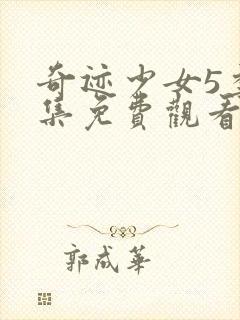 奇迹少女5季
集免費觀看
郭成華